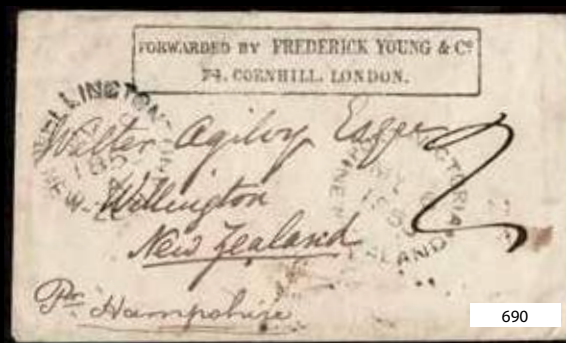 FORWARDED BY FREDERICK YOUNG & Co
74. CORNHILL. LONDON.
WELLINGTON
NEW
Walter Ogilvy Esqre
VICTORIA
ZEALAND
Wellington
New Zealand
2
Pr Hampshire
690